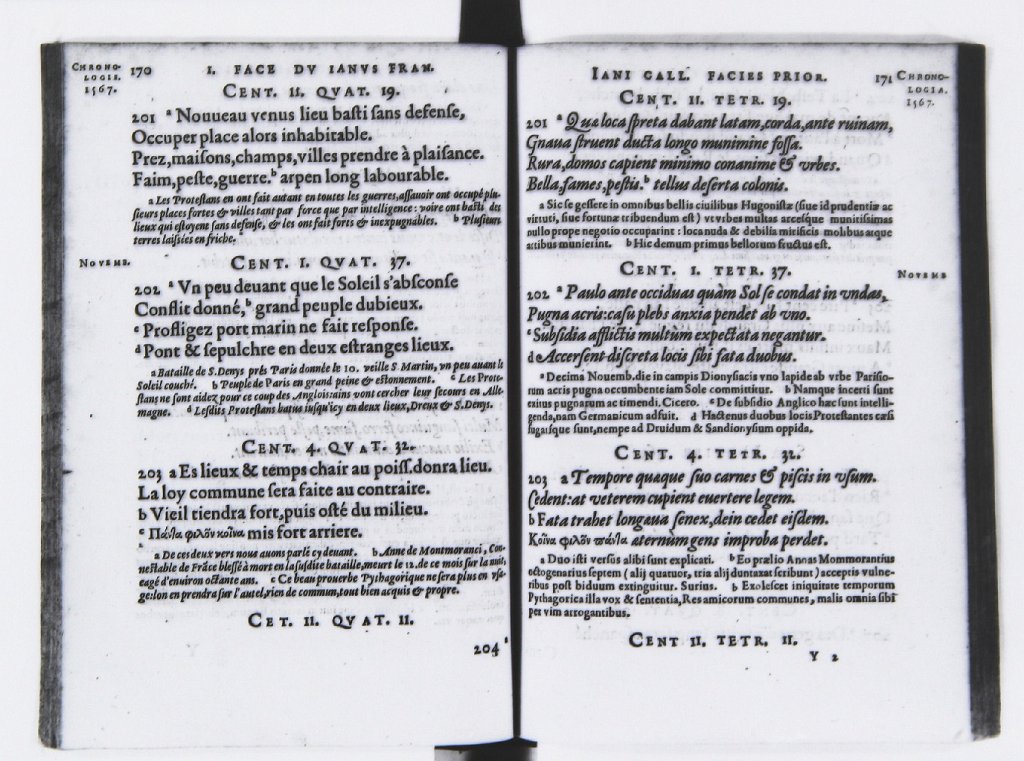 CHRONO-
LOGIE.
1567.
170 I. FACE DV IANVS FRAN.
CENT. II. QVAT. 19.
201 ª Nouueau venus lieu basti sans defense,
Occuper place alors inhabitable.
Prez,maisons,champs,villes prendre à plaisance.
Faim,peste,guerre.ᵇ arpen long labourable.
a Les Protestans en ont fait autant en toutes les guerres,assauoir ont occupé plu-
sieurs places fortes & villes tant par force que par intelligence : voire ont basti des
lieux qui estoyent sans defense, & les ont fait forts & inexpugnables. ᵇ Plusieurs
terres laissées en friche.
NOVEMB.
CENT. I. QVAT. 37.
202 ª Vn peu deuant que le Soleil s'absconse
Conflit donné,ᵇ grand peuple dubieux.
ᶜ Profligez port marin ne fait response.
ᵈ Pont & sepulchre en deux estranges lieux.
a Bataille de S.Denys prés Paris donnée le 10. veille S. Martin, vn peu auant le
Soleil couché. b Peuple de Paris en grand peine & estonnement. ᶜ Les Prote-
stans ne sont aidez pour ce coup des Anglois:ains vont cercher leur secours en Alle-
magne. ᵈ Lesdits Protestans batus iusqu'icy en deux lieux, Dreux & S.Denys.
CENT. 4. QVAT. 32.
203 a Es lieux & temps chair au poiss.donra lieu.
La loy commune sera faite au contraire.
b Vieil tiendra fort,puis osté du milieu.
ᶜ Πάντα φιλῶν κοῖνα mis fort arriere.
a De ces deux vers nous auons parlé cy deuant. b Anne de Montmoranci, Con-
nestable de Frãce blessé à mort en la susdite bataille,meurt le 12.de ce mois sur la nuit,
eagé d'enuiron octante ans. c Ce beau prouerbe Pythagorique ne sera plus en vsa-
ge:lon en prendra sur l'autel,rien de commun,tout bien acquis & propre.
CET. II. QVAT. II.
204
IANI GALL. FACIES PRIOR. 171
CHRONO-
LOGIA.
1567.
CENT. II. TETR. 19.
201 ª Quæ loca spreta dabant latam,corda,ante ruinam,
Gnaua struent ducta longo munimine fossa.
Rura,domos capient minimo conanime & vrbes.
Bella,fames,pestis.ᵇ tellus deserta colonis.
a Sic se gessere in omnibus bellis ciuilibus Hugonistæ (siue id prudentiæ ac
virtuti, siue fortunæ tribuendum est) vt vrbes multas arcesque munitissimas
nullo prope negotio occuparint : loca nuda & debilia mirificis molibus atque
artibus munierint. b Hic demum primus bellorum fructus est.
CENT. I. TETR. 37.
NOVEMB
202 ª Paulo ante occiduas quàm Sol se condat in vndas,
Pugna acris:casu plebs anxia pendet ab vno.
ᶜ Subsidia afflictis multùm expectata negantur.
d Accersent discreta locis sibi fata duobus.
a Decima Nouemb.die in campis Dionysiacis vno lapide ab vrbe Parisio-
rum acris pugna occumbente iam Sole committitur. b Namque incerti sunt
exitus pugnarum ac timendi. Cicero. ᶜ De subsidio Anglico hæc sunt intelli-
genda,nam Germanicum adfuit. d Hactenus duobus locis Protestantes cæsi
fugatique sunt,nempe ad Druidum & Sandionysium oppida.
CENT. 4. TETR. 32.
203 a Tempore quaque suo carnes & piscis in vsum.
Cedent:at veterem cupient euertere legem.
b Fata trahet longæua senex,dein cedet eisdem.
Κοῖνα φιλῶν πάντα æternùm gens improba perdet.
a Duo isti versus alibi sunt explicati. b Eo prælio Annas Mommorantius
octogenarius septem ( alij quatuor, tria alij duntaxat scribunt ) acceptis vulne-
ribus post biduum extinguitur. Surius. b Exolescet iniquitate temporum
Pythagorica illa vox & sententia, Res amicorum communes, malis omnia sibi
per vim arrogantibus.
CENT II. TETR. II.
Y 2